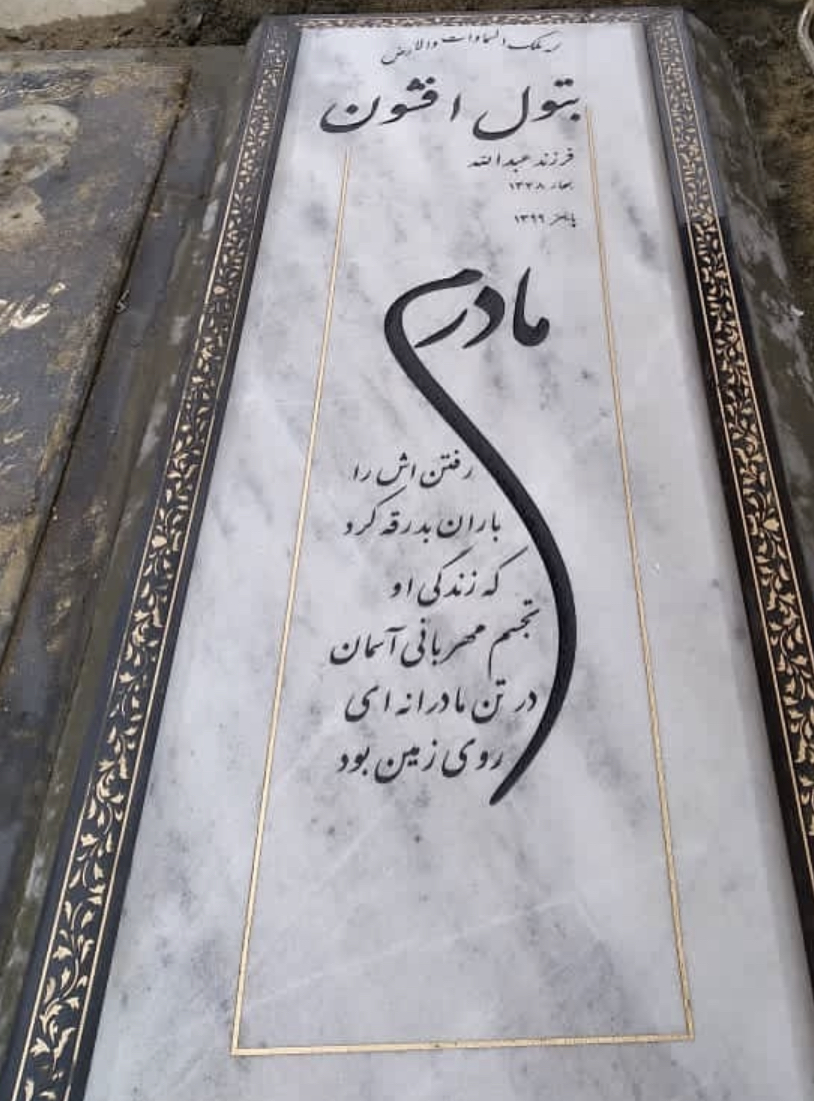 لله ملک السماوات والارض
بتول افشون
فرزند عبدالله
بهار ۱۳۳۸
پاییز ۱۳۹۹
مادرم
رفتن اش را
باران بدرقه کرد
که زندگی او
تجسم مهربانی آسمان
در تن مادرانه ای
روی زمین بود